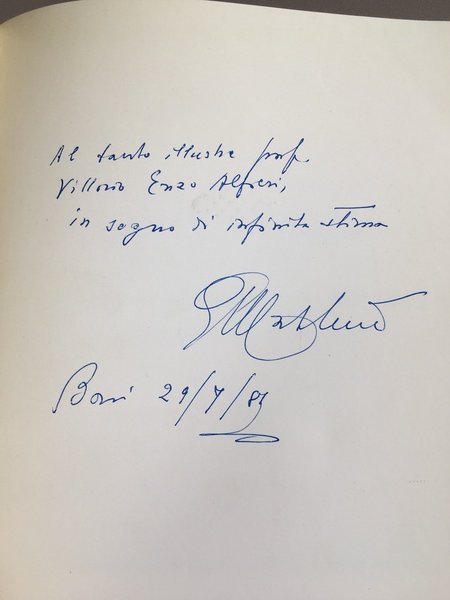 Al tanto illustre prof.
Vittorio Enzo Alfieri,
in segno di infinita stima
29/7/